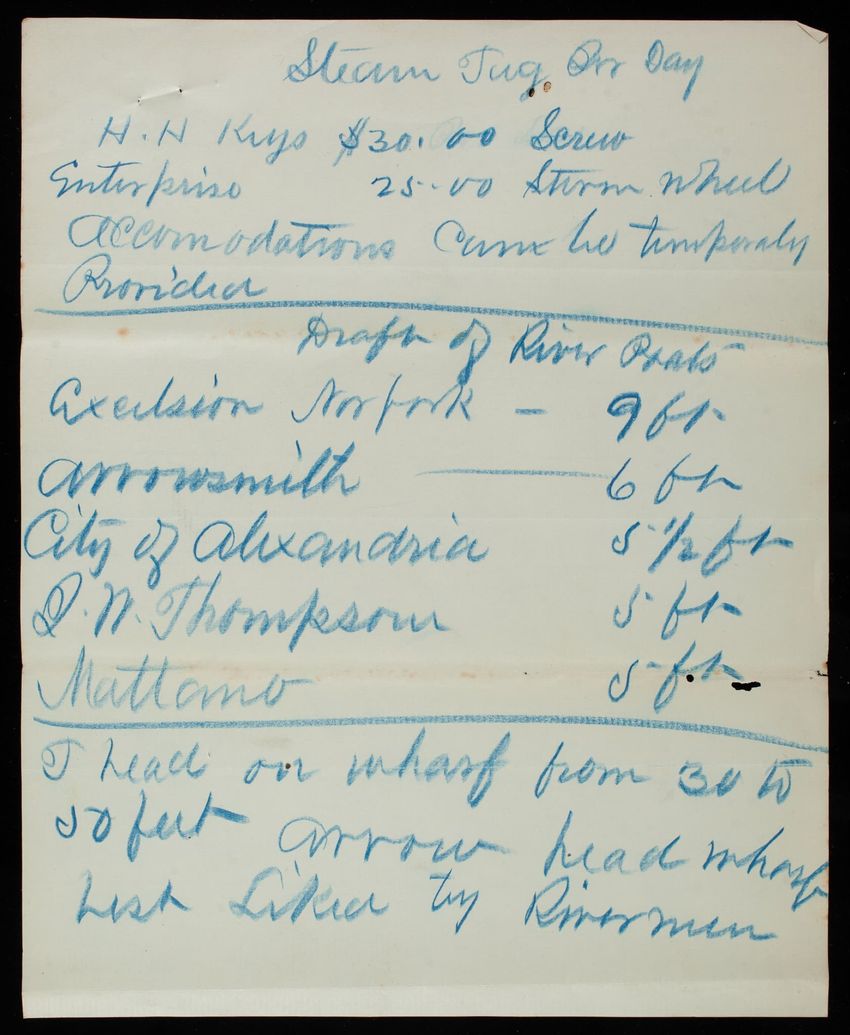 Steam Tug Per Day
H. H Keys $30.00 Screw
Enterprise 25.00 Stern Wheel
Accomodations Cane be temporaly
Provided
Draft of River Boats
Excelsior Norfork - 9 ft
Arrowsmith — 6 ft
City of Alexandria 5 1/2 ft
W. Thompson 5 ft
Mattano 5 ft
T head on wharf from 30 to
50 feet Arrow head wharf
best Liked by Rivermen